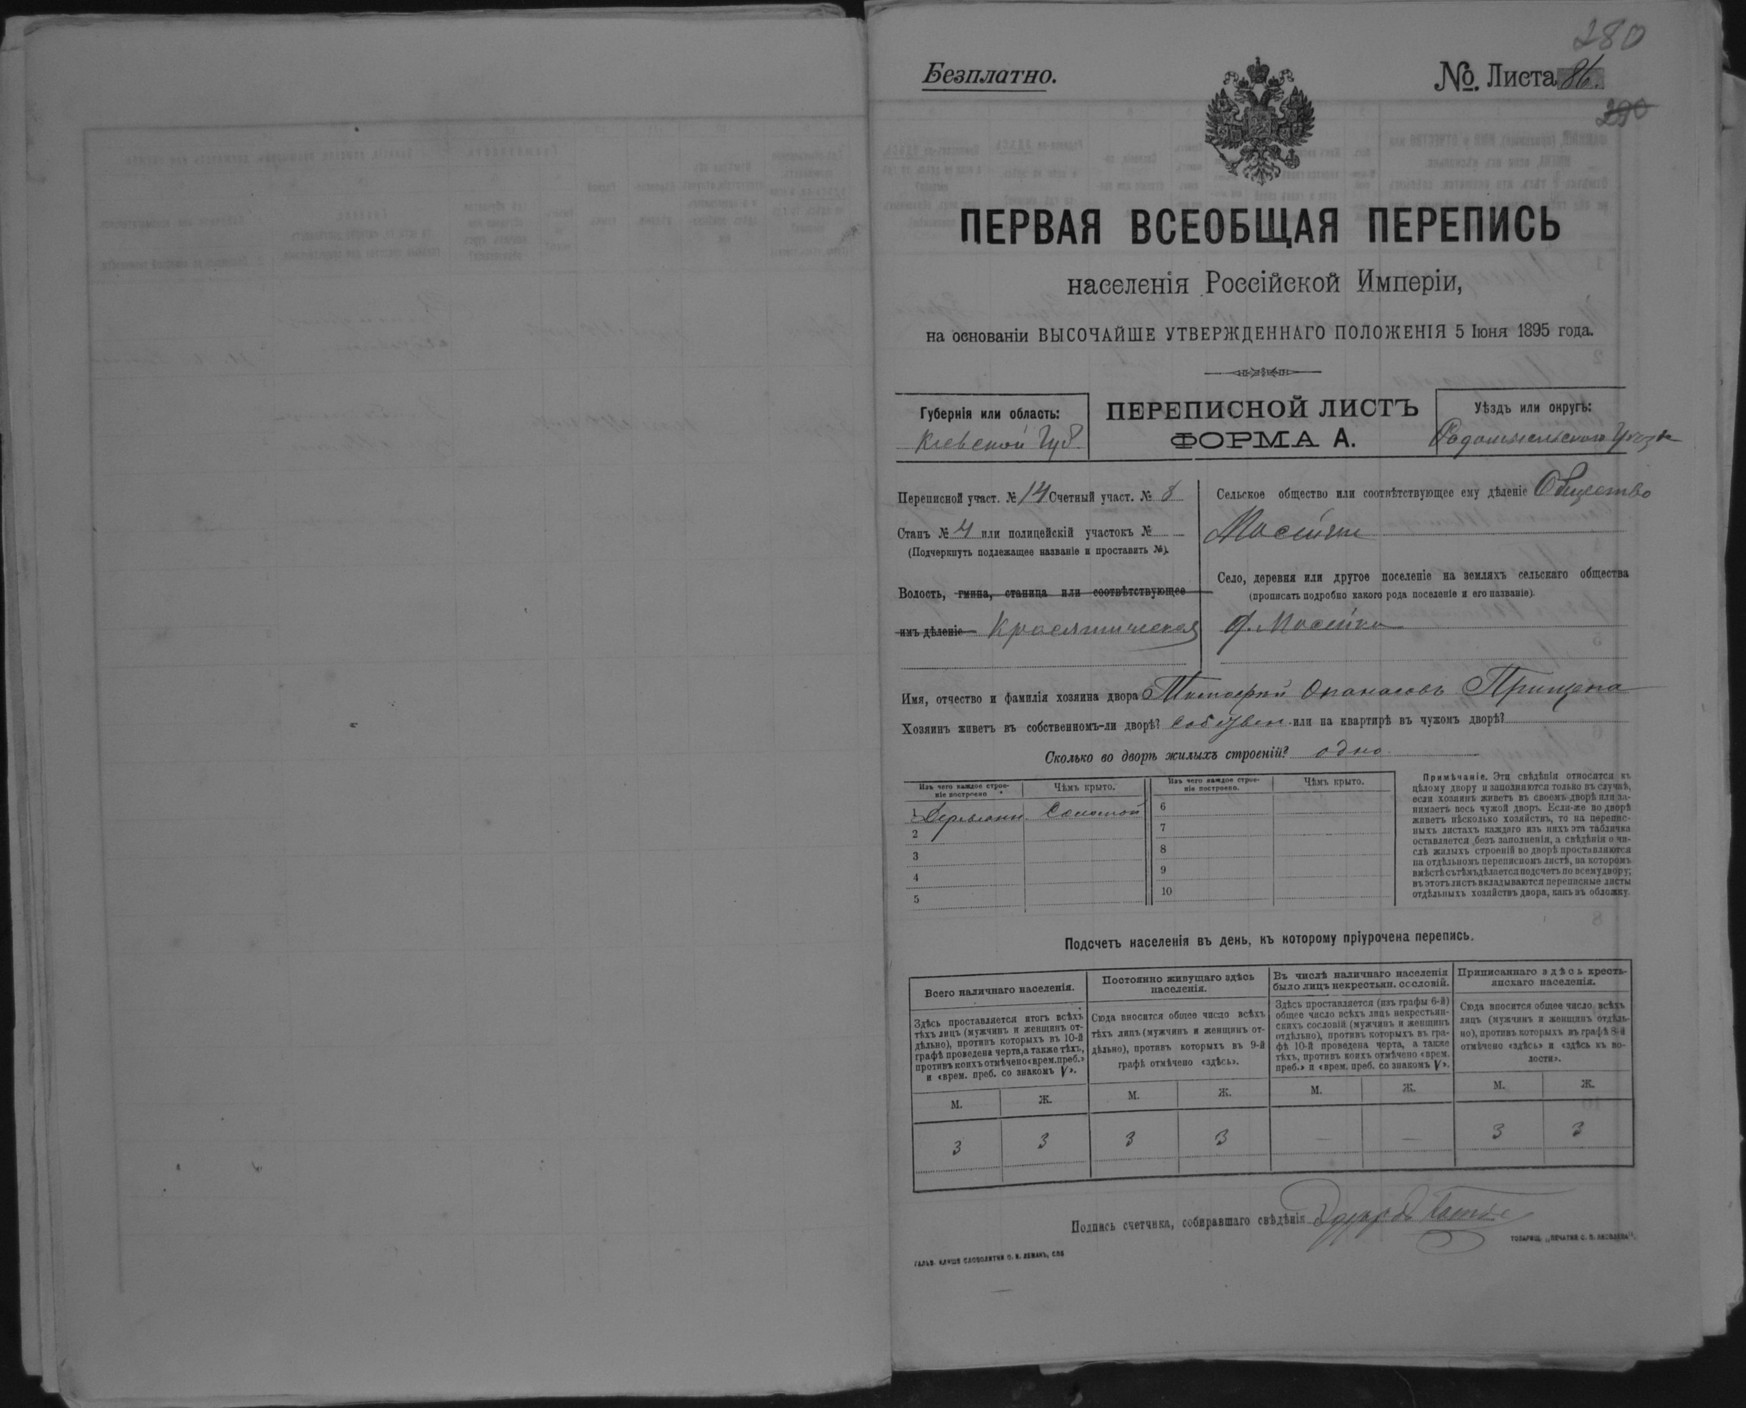 280
Безплатно.
№. Листа 86.
290
ПЕРВАЯ ВСЕОБЩАЯ ПЕРЕПИСЬ
населенія Россійской Имперіи,
на основаніи ВЫСОЧАЙШЕ УТВЕРЖДЕННАГО ПОЛОЖЕНІЯ 5 Іюня 1895 года.
Губернія или область:
Кіевской Губ.
ПЕРЕПИСНОЙ ЛИСТЪ
ФОРМА А.
Уѣздъ или округъ:
Радомысльскаго Уѣзда
Переписной участ. № 14 Счетный участ. № 8
Станъ № 4 или полицейскій участокъ №
(Подчеркнуть подлежащее названіе и проставить №).
Волость, гмина, станица или соотвѣтствующее
имъ дѣленіе Красятическая
Сельское общество или соотвѣтствующее ему дѣленіе Общество
Село, деревня или другое поселеніе на земляхъ сельскаго общества
(прописать подробно какого рода поселеніе и его названіе).
Имя, отчество и фамилія хозяина двора Тимофей Опанасовъ Прищепа
Хозяинъ живетъ въ собственномъ-ли дворѣ? собствен. или на квартирѣ въ чужомъ дворѣ?
Сколько во дворѣ жилыхъ строеній? одно
Изъ чего каждое строеніе построено.
Чѣмъ крыто.
Изъ чего каждое строеніе построено.
Чѣмъ крыто.
1 Деревянн. Соломой
2
3
4
5
6
7
8
9
10
Примѣчаніе. Эти свѣдѣнія относятся къ
цѣлому двору и заполняются только въ случаѣ,
если хозяинъ живетъ въ своемъ дворѣ или занимаетъ
весь чужой дворъ. Если-же во дворѣ
живетъ нѣсколько хозяйствъ, то на переписныхъ
листахъ каждаго изъ нихъ эта табличка
оставляется безъ заполненія, а свѣдѣнія о числѣ
жилыхъ строеній во дворѣ проставляются
на отдѣльномъ переписномъ листѣ, на которомъ
вмѣстѣ съ тѣмъ дѣлается подсчетъ по всему двору;
въ этотъ листъ вкладываются переписные листы
отдѣльныхъ хозяйствъ двора, какъ въ обложку.
Подсчетъ населенія въ день, къ которому пріурочена перепись.
Всего наличнаго населенія.
Здѣсь проставляется итогъ всѣхъ
тѣхъ лицъ (мужчинъ и женщинъ отдѣльно),
противъ которыхъ въ 10-й
графѣ проведена черта, а также тѣхъ,
противъ коихъ отмѣчено «врем. преб.»
и «врем. преб. со знакомъ V».
Постоянно живущаго здѣсь
населенія.
Сюда вносится общее число всѣхъ
тѣхъ лицъ (мужчинъ и женщинъ отдѣльно),
противъ которыхъ въ 9-й
графѣ отмѣчено «здѣсь».
Въ числѣ наличнаго населенія
было лицъ некрестьян. сословій.
Здѣсь проставляется (изъ графы 6-й)
общее число всѣхъ лицъ некрестьянскихъ
сословій (мужчинъ и женщинъ
отдѣльно), противъ которыхъ въ графѣ
10-й проведена черта, а также
тѣхъ, противъ коихъ отмѣчено «врем.
преб.» и «врем. преб. со знакомъ V».
Приписаннаго здѣсь крестьянскаго
населенія.
Сюда вносится общее число всѣхъ
лицъ (мужчинъ и женщинъ отдѣльно),
противъ которыхъ въ графѣ 8-й
отмѣчено «здѣсь» и «здѣсь къ волости».
М. Ж. М. Ж. М. Ж. М. Ж.
3 3 3 3 — — 3 3
Подпись счетчика, собиравшаго свѣдѣнія Эдуардъ
ГАЛЬВ. КЛИШЕ СЛОВОЛИТНИ О. И. ЛЕМАНЪ, СПБ
ТОВАРИЩ. „ПЕЧАТНЯ С. П. ЯКОВЛЕВА“.